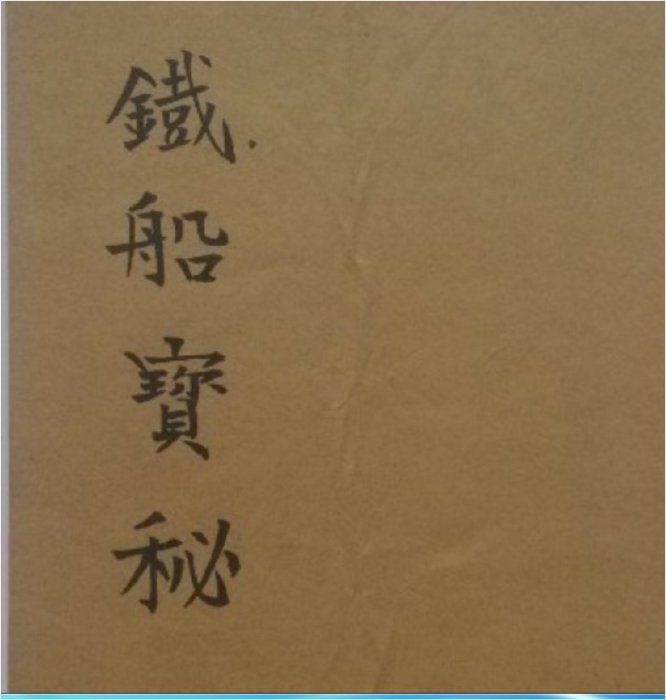 鐵船寶秘